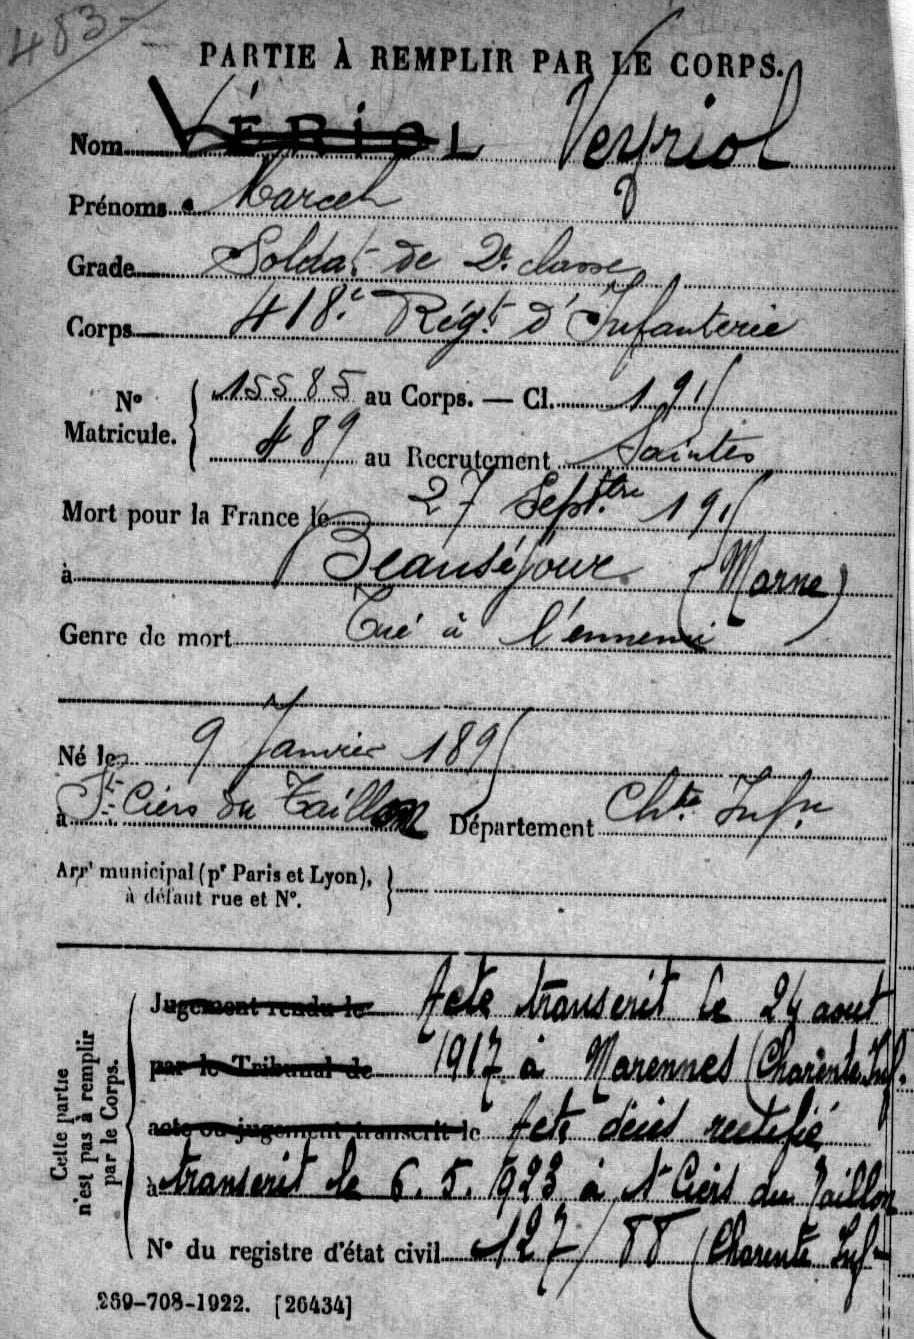 483
PARTIE À REMPLIR PAR LE CORPS.
Nom VÉRIOL Veyriol
Prénoms Marcel
Grade Soldat de 2e classe
Corps 418e Régt d'Infanterie
N° Matricule. { 15585 au Corps. — Cl. 1915
489 au Recrutement Saintes
Mort pour la France le 27 Septbre 1915
à Beauséjour (Marne)
Genre de mort Tué à l'ennemi
Né le 9 Janvier 1895
à St Ciers du Taillon Département Chte Infre
Arrt municipal (pr Paris et Lyon),
à défaut rue et N°.
Cette partie
n'est pas à remplir
par le Corps.
Jugement rendu le Acte transcrit le 24 aout
par le Tribunal de 1917 à Marennes (Charente Inf.
acte ou jugement transcrit le Acte décès rectifié
à transcrit le 6.5.1923 à St Ciers du Taillon
N° du registre d'état civil 127/88 (Charente Inf
269-708-1922. [26434]